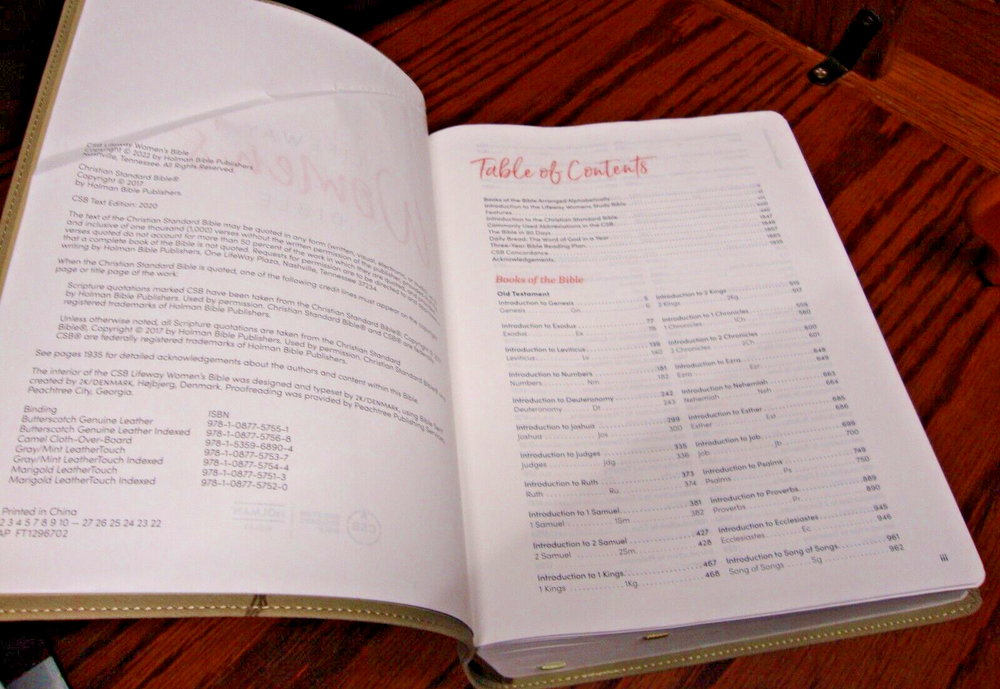 CSB Lifeway Women's Bible
Copyright © 2022 by Holman Bible Publishers
Nashville, Tennessee. All Rights Reserved.
Christian Standard Bible®
Copyright © 2017
by Holman Bible Publishers.
CSB Text Edition: 2020
The text of the Christian Standard Bible may be quoted in any form (written, visual, electronic, or
and inclusive of one thousand (1,000) verses without the written permission of the publisher,
verses quoted do not account for more than 50 percent of the work in which they are quoted,
that a complete book of the Bible is not quoted. Requests for permission are to be directed to
writing by Holman Bible Publishers, One LifeWay Plaza, Nashville, Tennessee 37234.
When the Christian Standard Bible is quoted, one of the following credit lines must appear on the
page or title page of the work:
Scripture quotations marked CSB have been taken from the Christian Standard Bible®, Copyright ©
by Holman Bible Publishers. Used by permission. Christian Standard Bible® and CSB® are
registered trademarks of Holman Bible Publishers.
Unless otherwise noted, all Scripture quotations are taken from the Christian Standard
Bible®, Copyright © 2017 by Holman Bible Publishers. Used by permission. Christian Standard
CSB® are federally registered trademarks of Holman Bible Publishers.
See pages 1935 for detailed acknowledgements about the authors and content within this Bible
The interior of the CSB Lifeway Women's Bible was designed and typeset by 2K/DENMARK, using Bible
created by 2K/DENMARK, Højbjerg, Denmark. Proofreading was provided by Peachtree Publishing Services,
Peachtree City, Georgia.
Binding ISBN
Butterscotch Genuine Leather 978-1-0877-5755-1
Butterscotch Genuine Leather Indexed 978-1-0877-5756-8
Camel Cloth-Over-Board 978-1-5359-6890-4
Gray/Mint LeatherTouch 978-1-0877-5753-7
Gray/Mint LeatherTouch Indexed 978-1-0877-5754-4
Marigold LeatherTouch 978-1-0877-5751-3
Marigold LeatherTouch Indexed 978-1-0877-5752-0
Printed in China
2 3 4 5 7 8 9 10 — 27 26 25 24 23 22
AP FT1296702
Table of Contents
Books of the Bible Arranged Alphabetically
Introduction to the Lifeway Women's Study Bible
Features
Introduction to the Christian Standard Bible
Commonly Used Abbreviations in the CSB
The Bible in 90 Days
Daily Bread: The Word of God in a Year
Three-Year Bible Reading Plan
CSB Concordance
Acknowledgements 1935
Books of the Bible
Old Testament
Introduction to Genesis 5
Genesis Gn 6
Introduction to Exodus 77
Exodus Ex 78
Introduction to Leviticus 139
Leviticus Lv 140
Introduction to Numbers 181
Numbers Nm 182
Introduction to Deuteronomy 242
Deuteronomy Dt 243
Introduction to Joshua 299
Joshua Jos 300
Introduction to Judges 335
Judges Jdg 336
Introduction to Ruth 373
Ruth Ru 374
Introduction to 1 Samuel 381
1 Samuel 1Sm 382
Introduction to 2 Samuel 427
2 Samuel 2Sm 428
Introduction to 1 Kings 467
1 Kings 1Kg 468
Introduction to 2 Kings
2 Kings 2Kg 517
Introduction to 1 Chronicles 559
1 Chronicles 1Ch 560
Introduction to 2 Chronicles 600
2 Chronicles 2Ch 601
Introduction to Ezra 648
Ezra Ezr 649
Introduction to Nehemiah 663
Nehemiah Neh 664
Introduction to Esther 685
Esther Est 686
Introduction to Job 699
Job Jb 700
Introduction to Psalms 749
Psalms Ps 750
Introduction to Proverbs 889
Proverbs Pr 890
Introduction to Ecclesiastes 945
Ecclesiastes Ec 946
Introduction to Song of Songs 961
Song of Songs Sg 962
iii